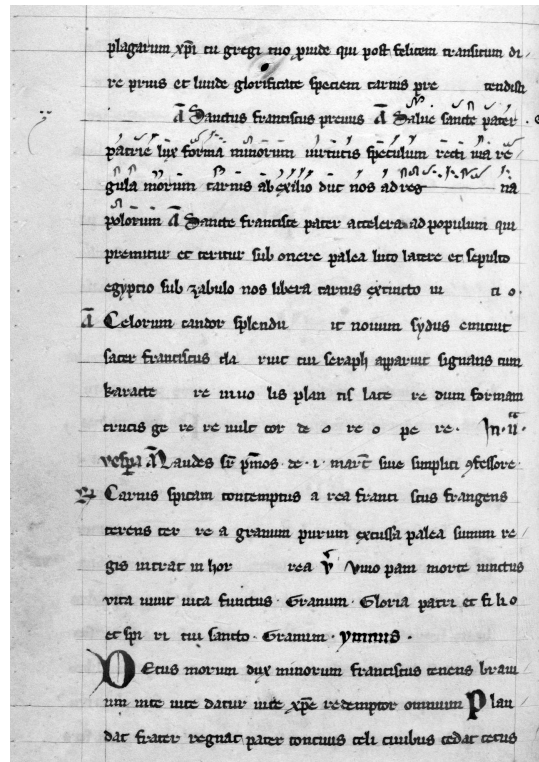 plagarum xpi tu gregi tuo puide qui post felicem transitum di
re prius et lunde glorificate speciem carnis pre tendisti
A Sanctus franciscus previus A Salue sancte pater
patrie lux forma minorum uirtutis speculum recti uia re
gula morum carnis ab exilio duc nos ad res na
polorum A Sancte francisce pater accelera ad populum qui
premitur et teritur sub onere palea luto latere et sepulto
egyptio sub zabulo nos libera carnis extincto ui ti o
A Celorum candor splendu it nouum sydus emicuit
sacer franciscus cla ruit cui seraph apparuit signans eum
karacte re in uo lis plan tis late re dum formam
crucis ge re re uult cor de o re o pe re. In. ii.
vespa. A Laudes sr pmos de. i. martr siue simplici 9fessore.
R Carnis spicam contemptus a rea franci scus frangens
terens ter re a granum purum excussa palea summi re
gis intrat in hor rea V Viuo pani morte iunctus
vita uiuit uita functus. Granum. Gloria patri et fi li o
et spi ri tui sancto. Granum. ymnus.
Decus morum dux minorum franciscus tenens braui
um in te uice datur uite xpe redemptor omnium Plau
dat frater regnat pater conciuis celi ciuibus cedat cetus